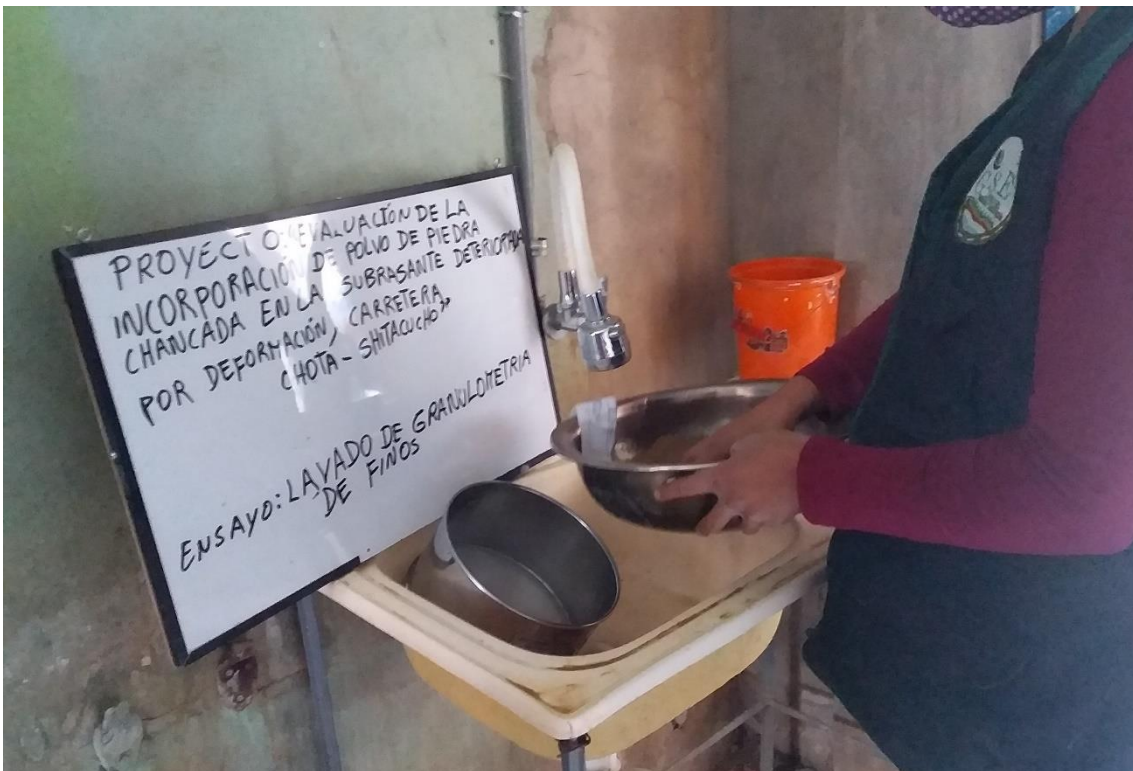 PROYECTO: "EVALUACIÓN DE LA
INCORPORACIÓN DE POLVO DE PIEDRA
CHANCADA EN LA SUBRASANTE DETERIORADA
POR DEFORMACIÓN, CARRETERA
CHOTA - SHITACUCHO"
ENSAYO: LAVADO DE GRANULOMETRIA
DE FINOS